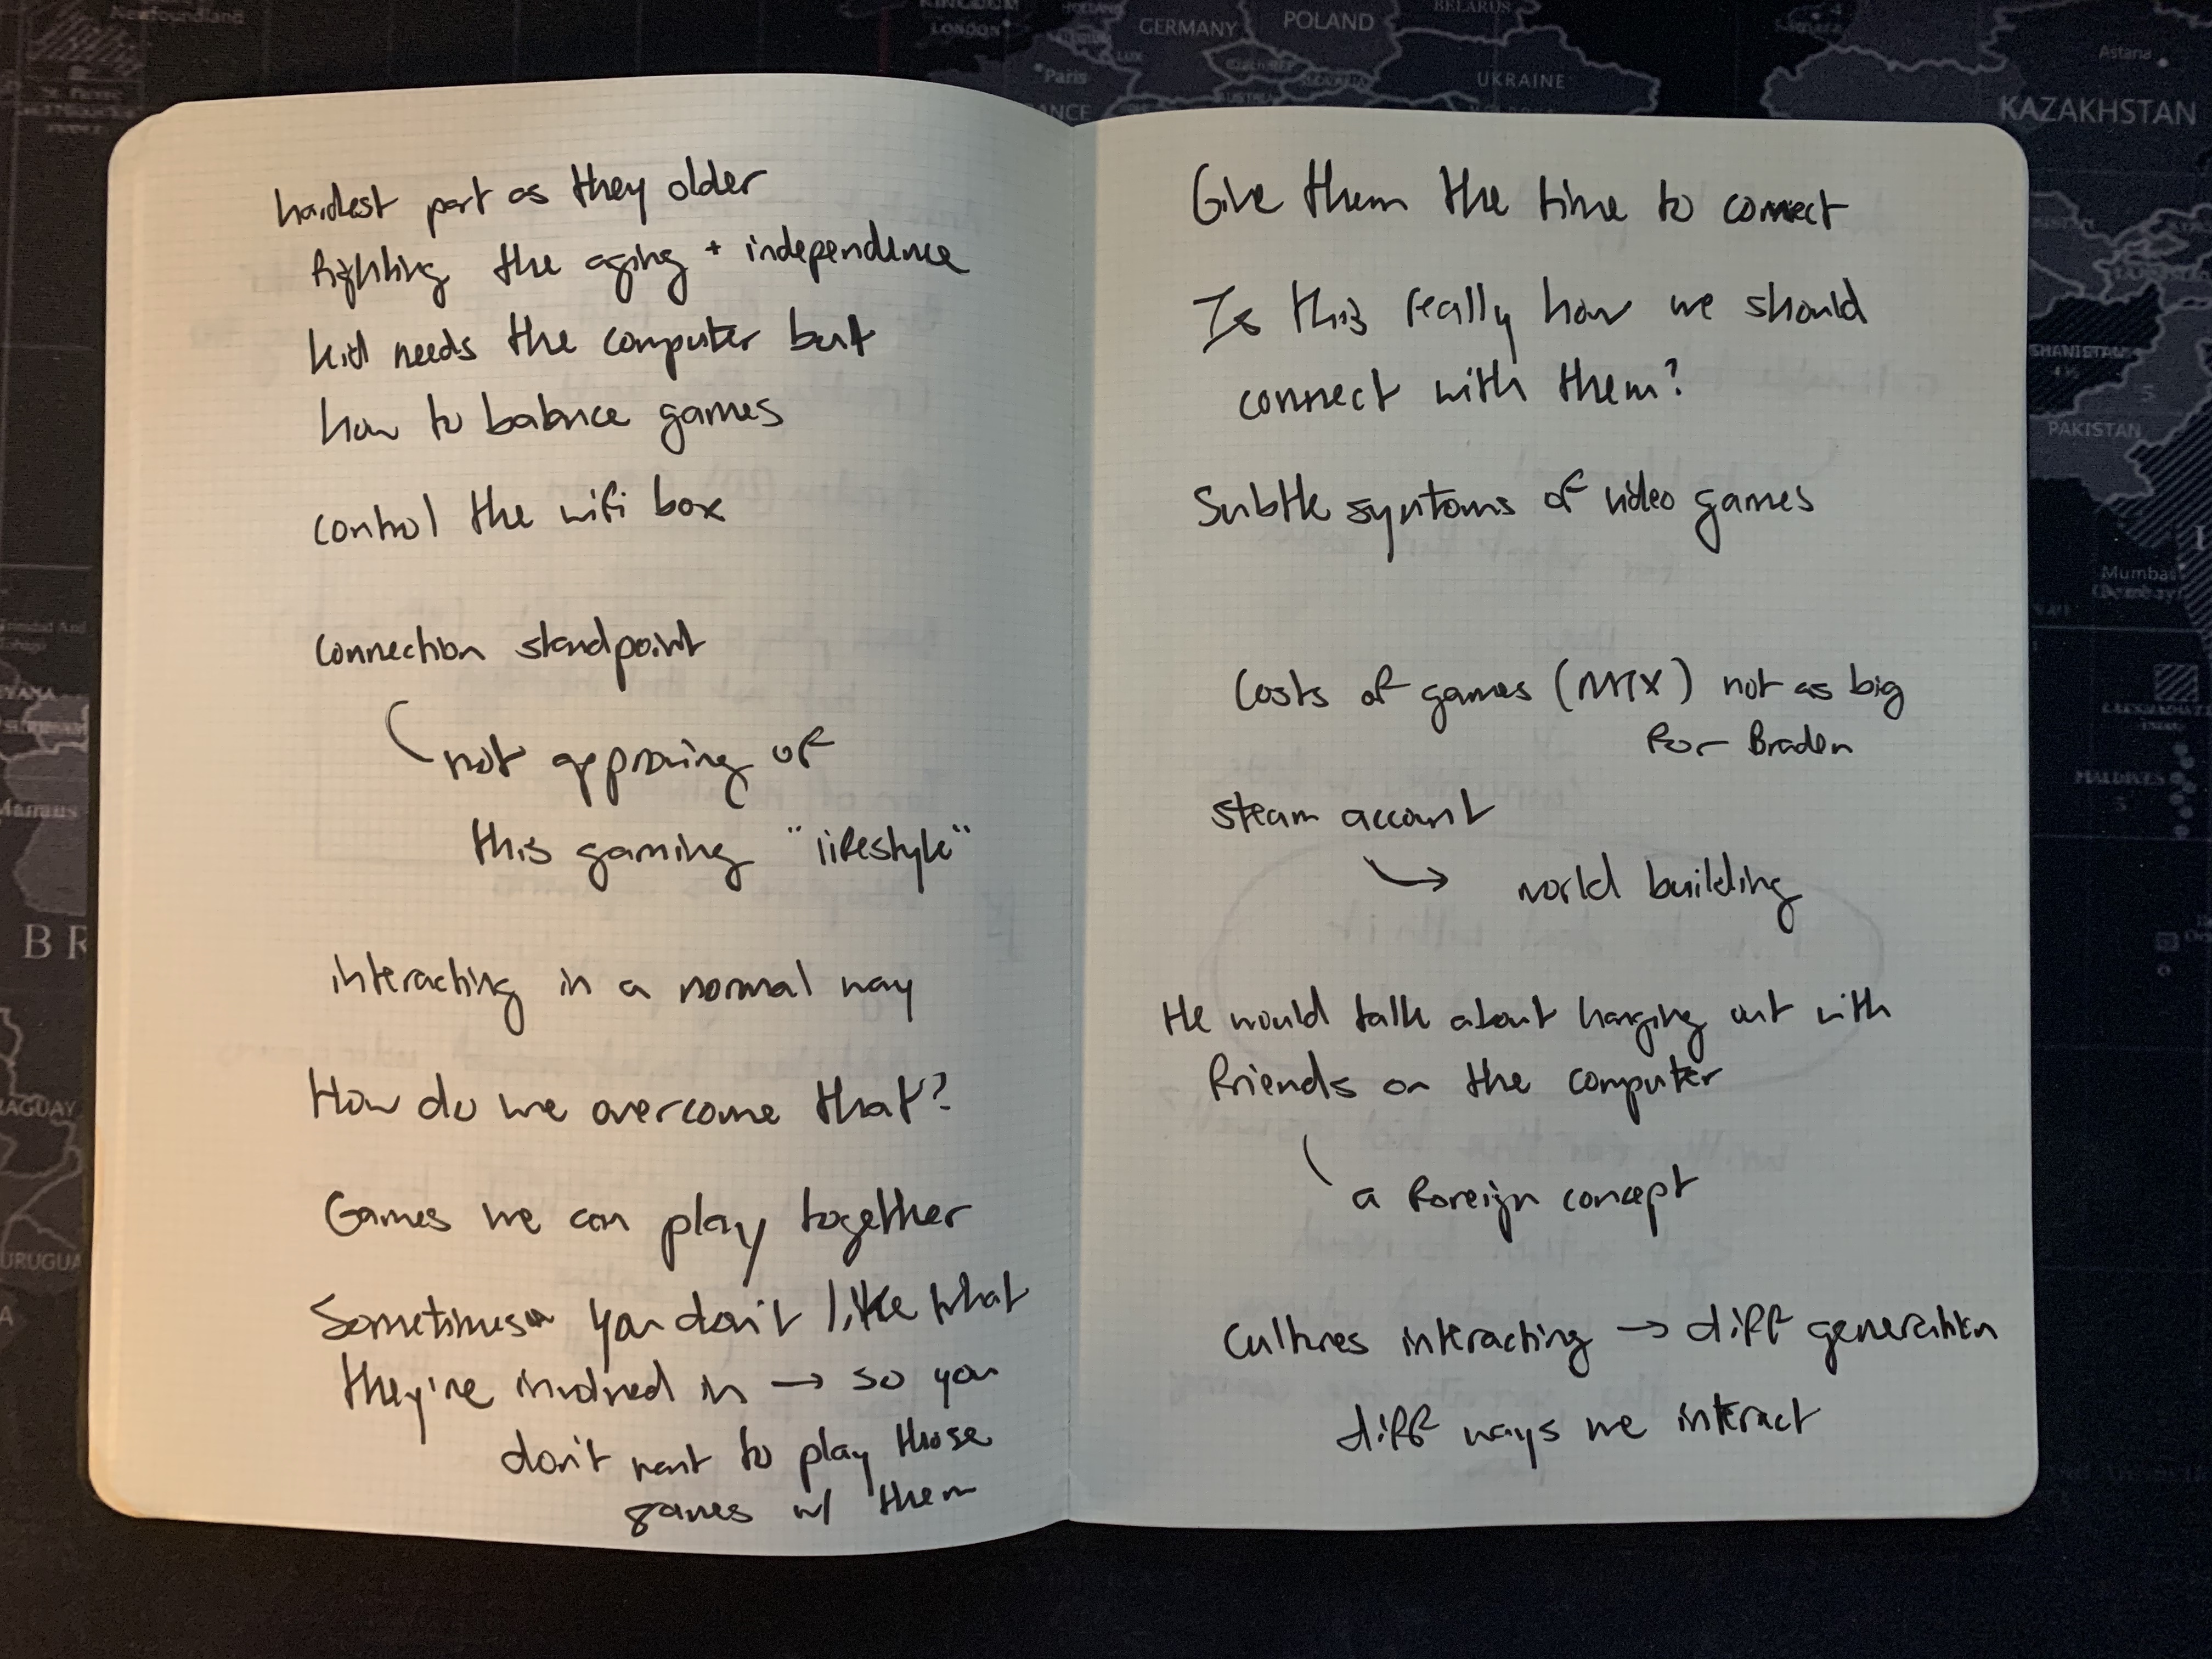 hardest part as they older
fighting the aging + independence
kid needs the computer but
how to balance games
control the wifi box
connection standpoint
not approving of
this gaming "lifestyle"
interacting in a normal way
How do we overcome that?
Games we can play together
Sometimes you don't like what
they're involved in → so you
don't want to play those
games w/ them
Give them the time to connect
Is this really how we should
connect with them?
Subtle syntoms of video games
Costs of games (MTX) not as big
for Braden
steam account
→ world building
He would talk about hanging out with
friends on the computer
a foreign concept
Cultures interacting → diff generation
diff ways we interact
Newfoundland
LONDON
GERMANY
POLAND
BELARUS
LUX
Paris
UKRAINE
Astana
KAZAKHSTAN
PAKISTAN
Mumbai
(Bombay)
MALDIVES
BR